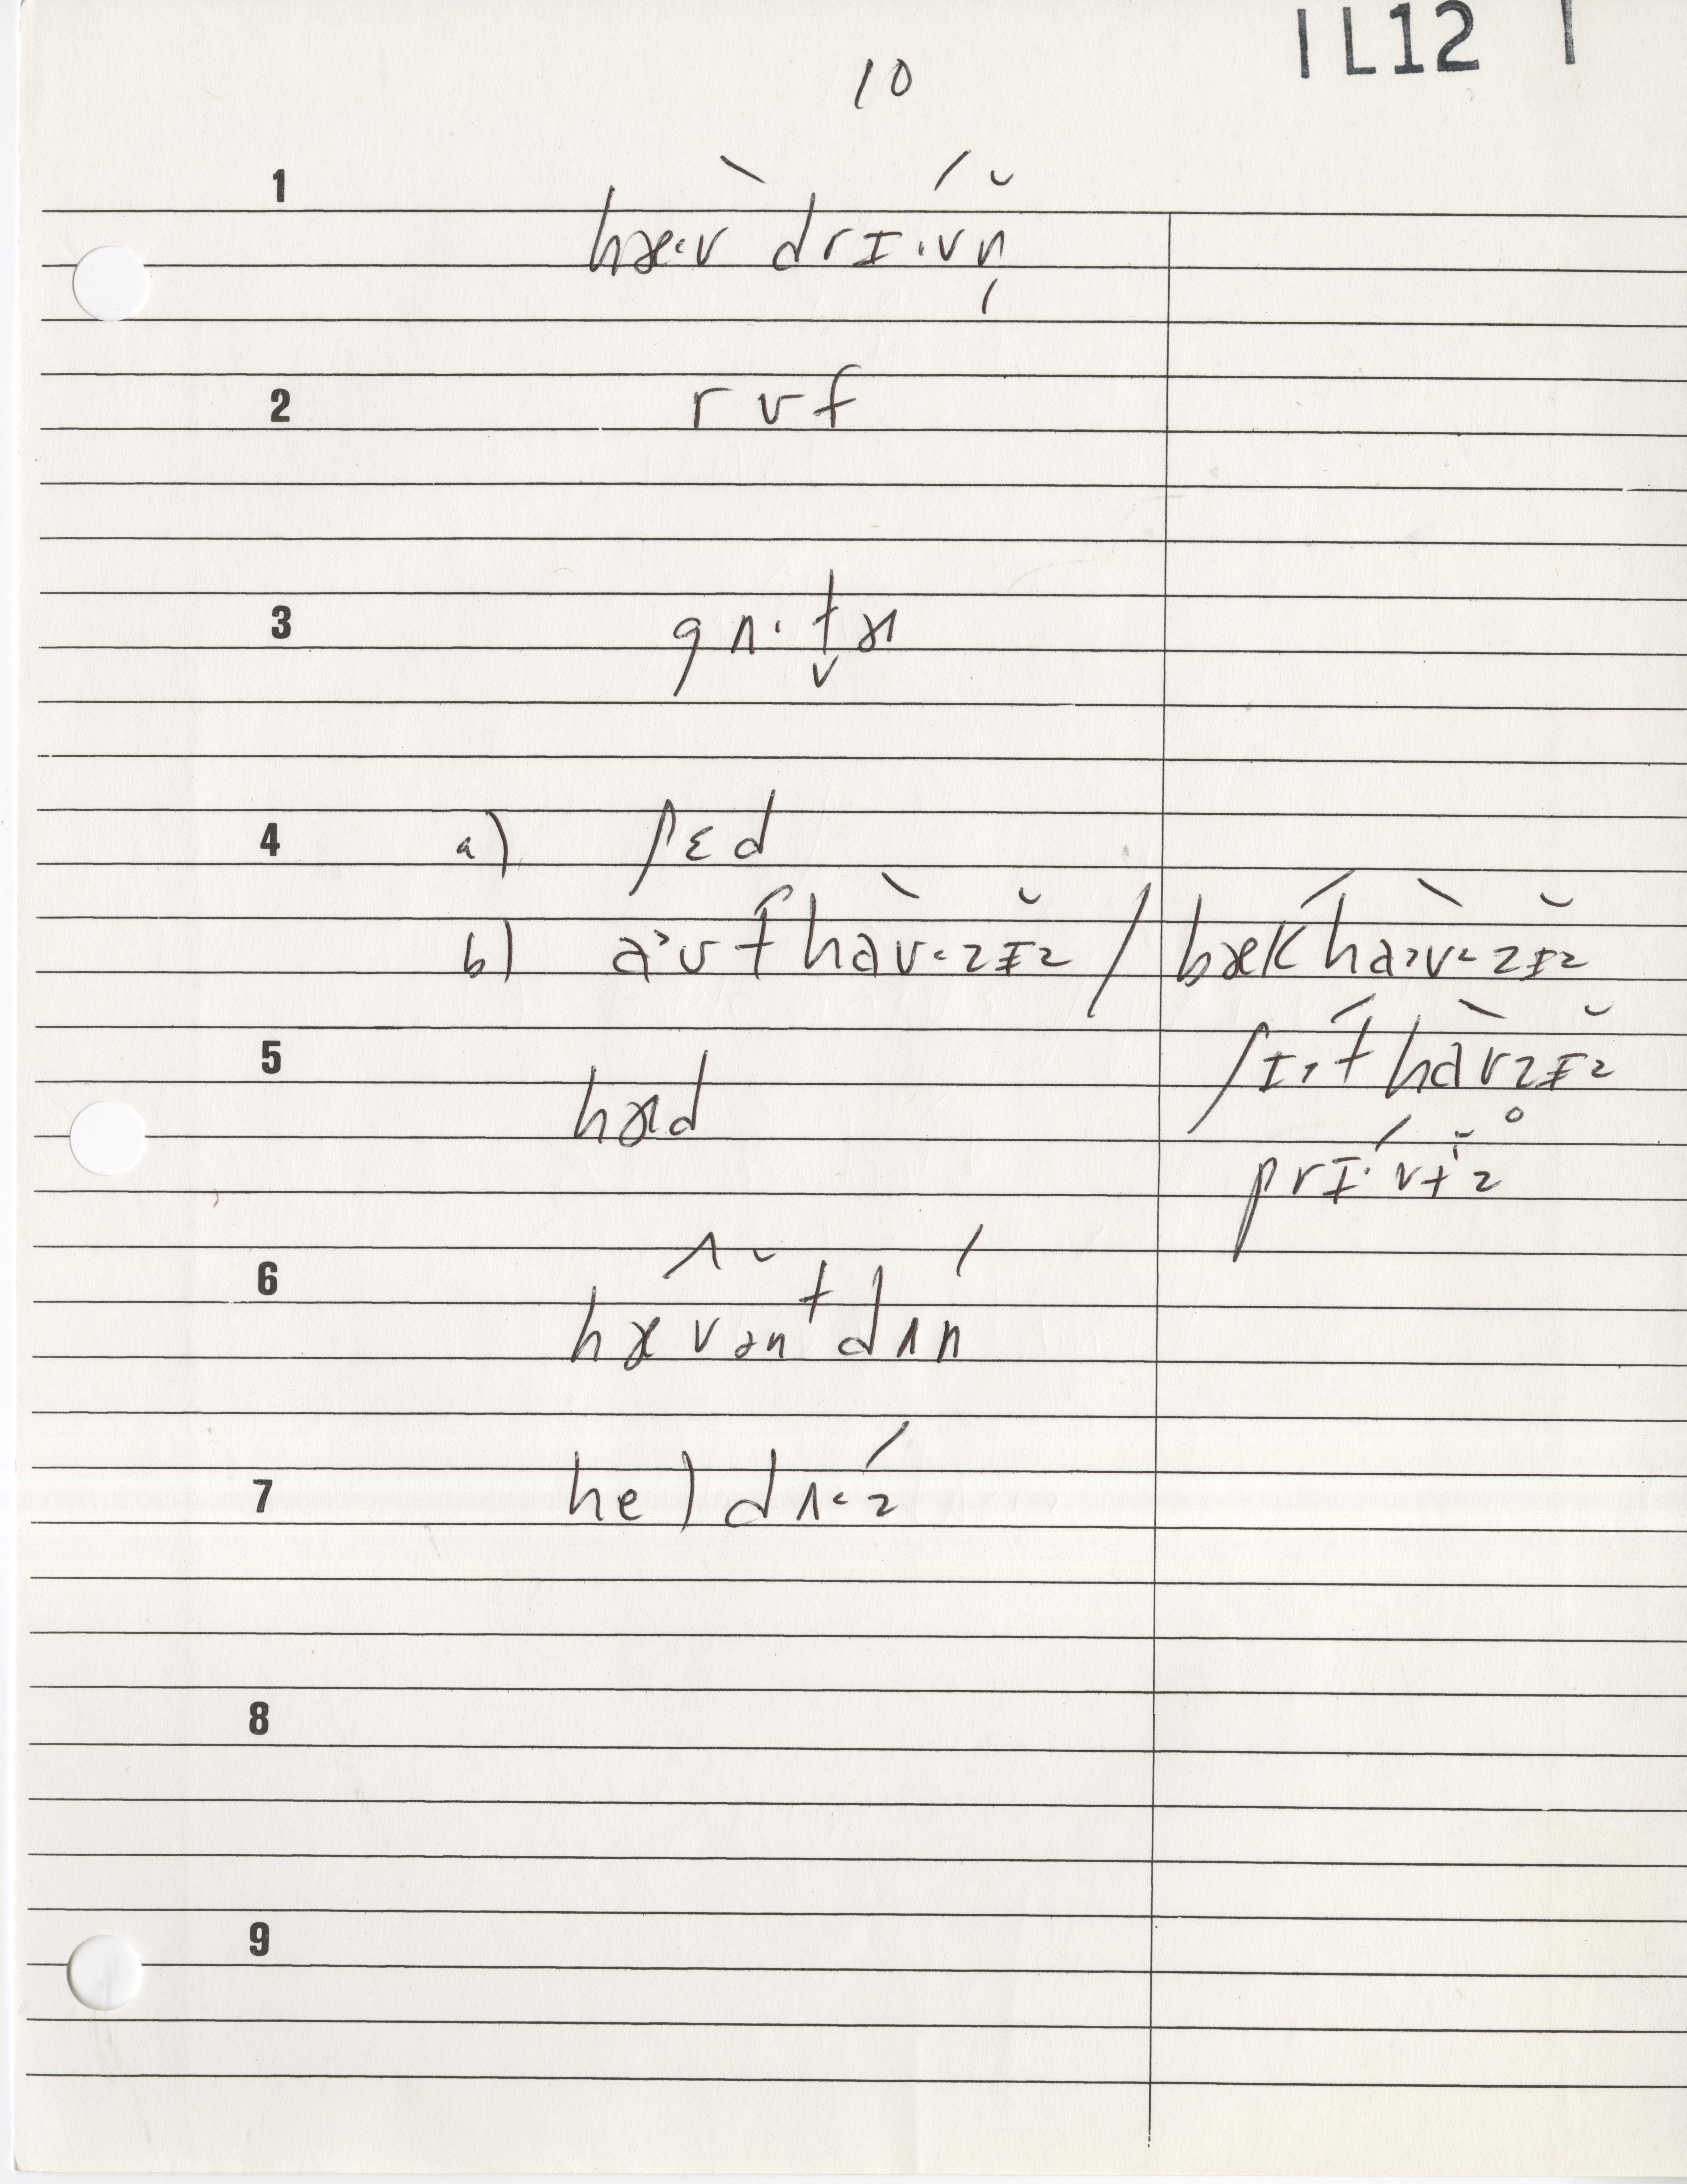 1L12 1
10
1 hæ·v drɪ·vn̩
2 rʊf
3 gʌ·t̬ɚ
4 a) ʃɛd
b) a˃ʊt haʊ˂zɪz / bæk ha˃ʊ˂zɪz
ʃɪ˒t haʊzɪz
prɪ·vɨz
5 hæd
6 hævənt dʌn
7 he) dʌ˂z
8
9